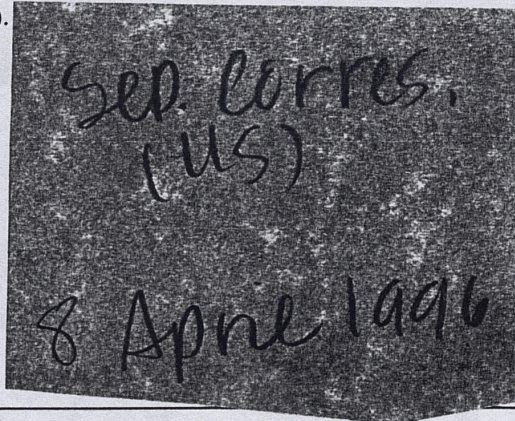 Sep. Corres.
(US)
8 April 1996